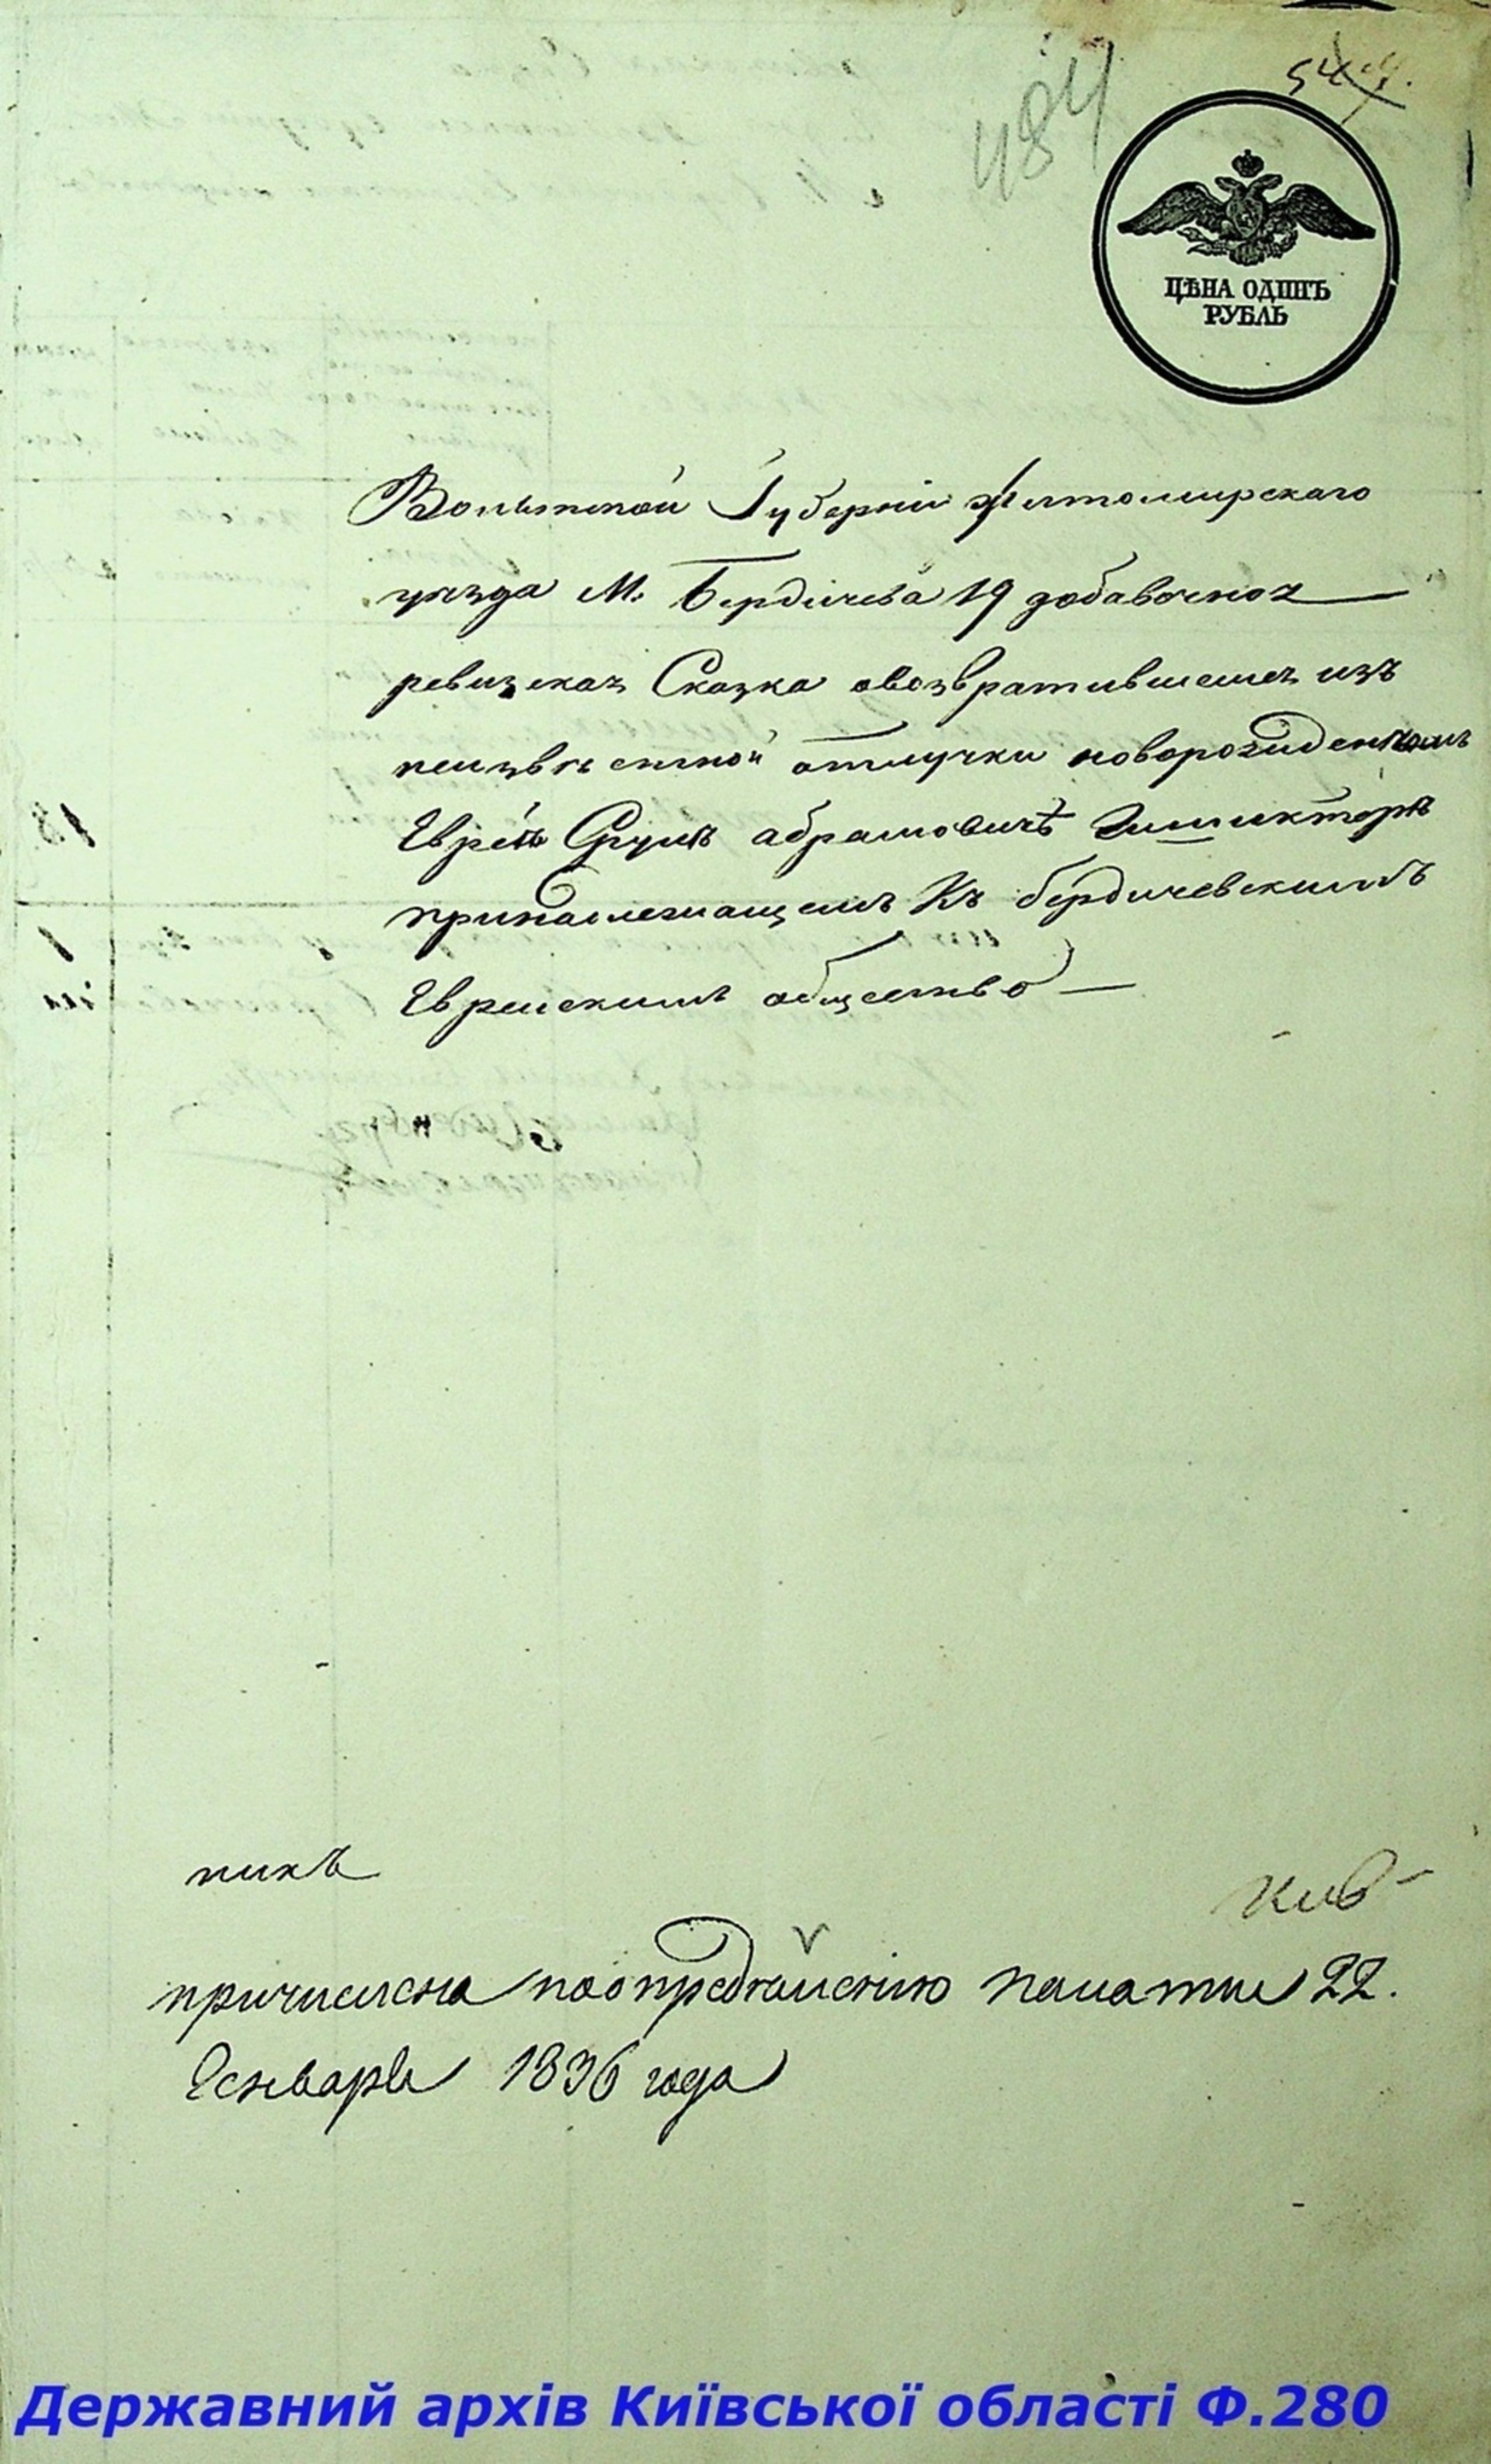 484
544.
ЦѢНА ОДИНЪ
РУБЛЬ
Волынской Губерніи Житомирскаго
уѣзда М. Бердичева 19 добавочная
ревизсказ Сказка овозвратившемся изъ
неизвѣстной отлучки новорожденномъ
Евреѣ Абрамовичъ
принадлежащемъ Къ бердичевскимъ
Евреискимъ общество
никъ
причислена поопредѣленію палаты 22.
Генваря 1836 года
Державний архів Київської області Ф.280